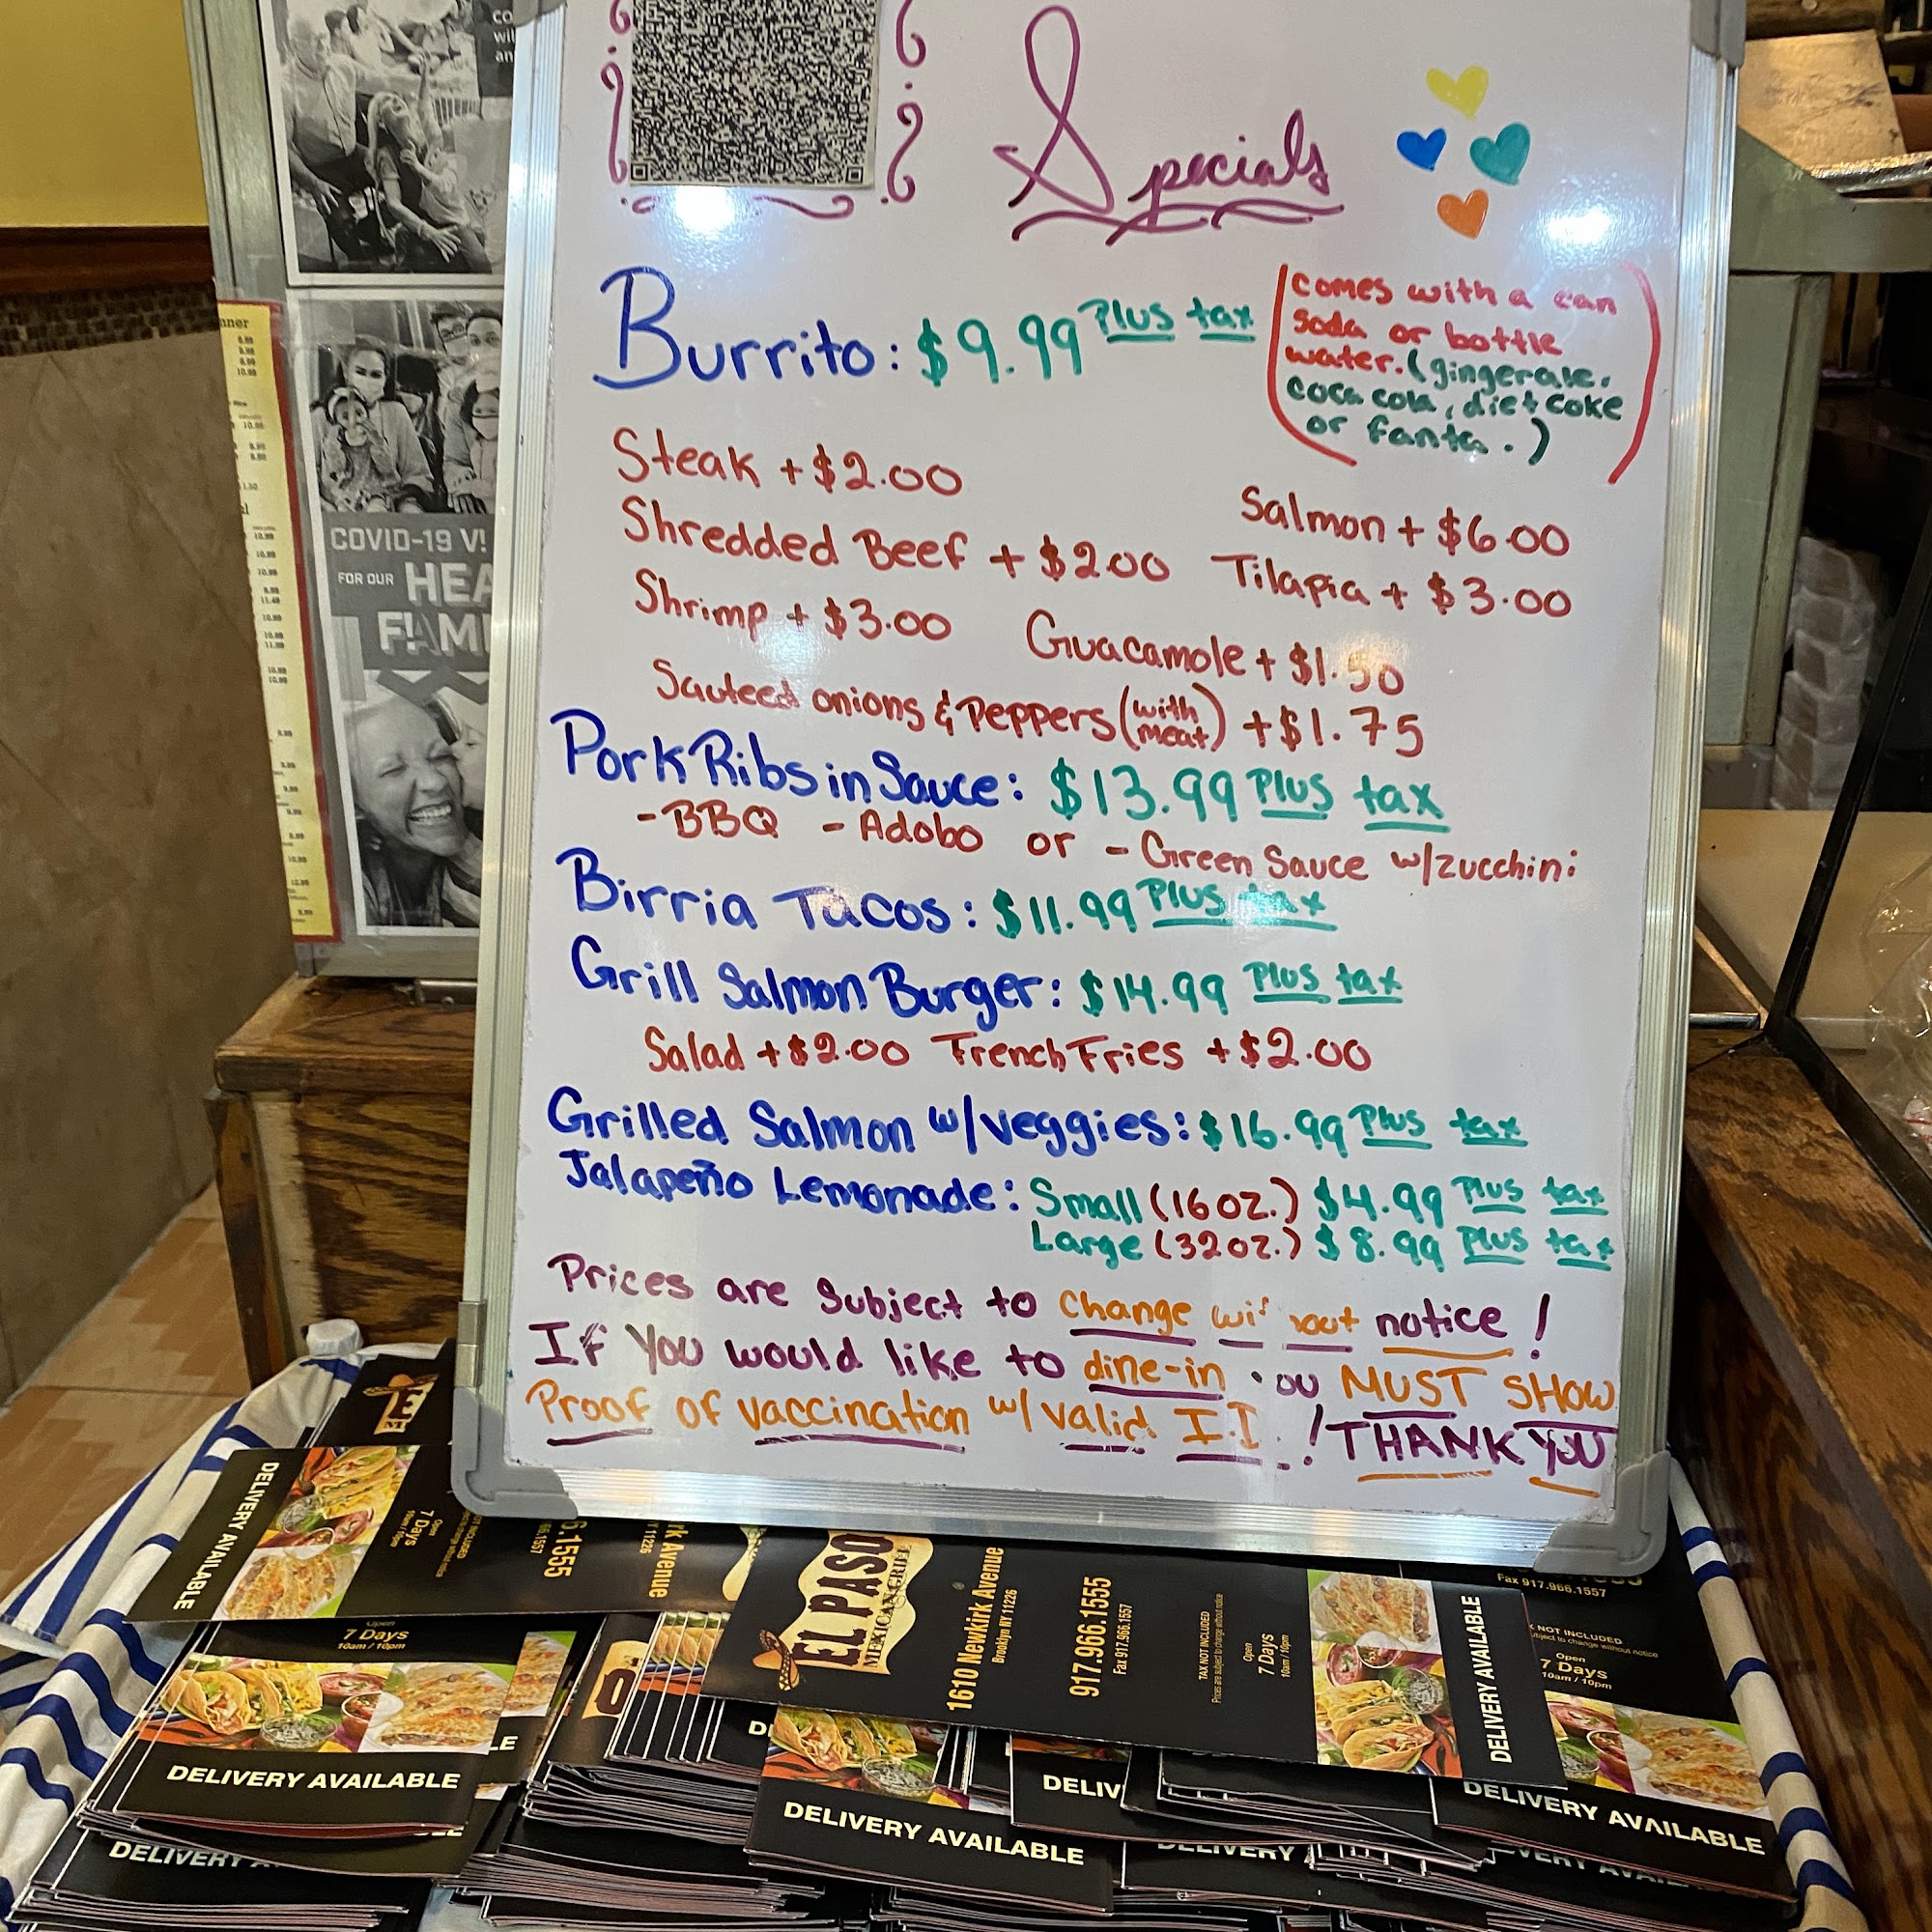 Specials
Burrito: $9.99 Plus tax
(comes with a can
soda or bottle
water. (gingerale,
coca cola, diet coke
or fanta.)
Steak +$2.00
Salmon + $6.00
Shredded Beef + $2.00
Tilapia + $3.00
Shrimp + $3.00
Guacamole + $1.50
Sauteed onions & Peppers (with meat) + $1.75
Pork Ribs in Sauce: $13.99 Plus tax
- BBQ - Adobo or - Green Sauce w/zucchini
Birria Tacos: $11.99 Plus tax
Grill Salmon Burger: $14.99 Plus tax
Salad +$2.00 French Fries +$2.00
Grilled Salmon w/veggies: $16.99 Plus tax
Jalapeño Lemonade: Small (16oz.) $4.99 Plus tax
Large (32oz.) $8.99 Plus tax
Prices are subject to change notice!
If you would like to dine-in MUST SHOW
Proof of vaccination w/ valid ! THANK YOU
COVID-19
FOR OUR
DELIVERY AVAILABLE
Open
7 Days
10am / 10pm
EL PASO
MEXICAN GRILL
1610 Newkirk Avenue
Brooklyn NY 11226
917.966.1555
Fax 917.966.1557
TAX NOT INCLUDED
Prices are subject to change without notice
Open
7 Days
10am / 10pm
DELIVERY AVAILABLE
Fax 917.966.1557
NOT INCLUDED
change without notice
Open
7 Days
10am / 10pm
Open
7 Days
10am / 10pm
DELIVERY AVAILABLE
DELIVERY AVAILABLE
DELIVERY AVAILABLE
DELIVERY
DELIVERY